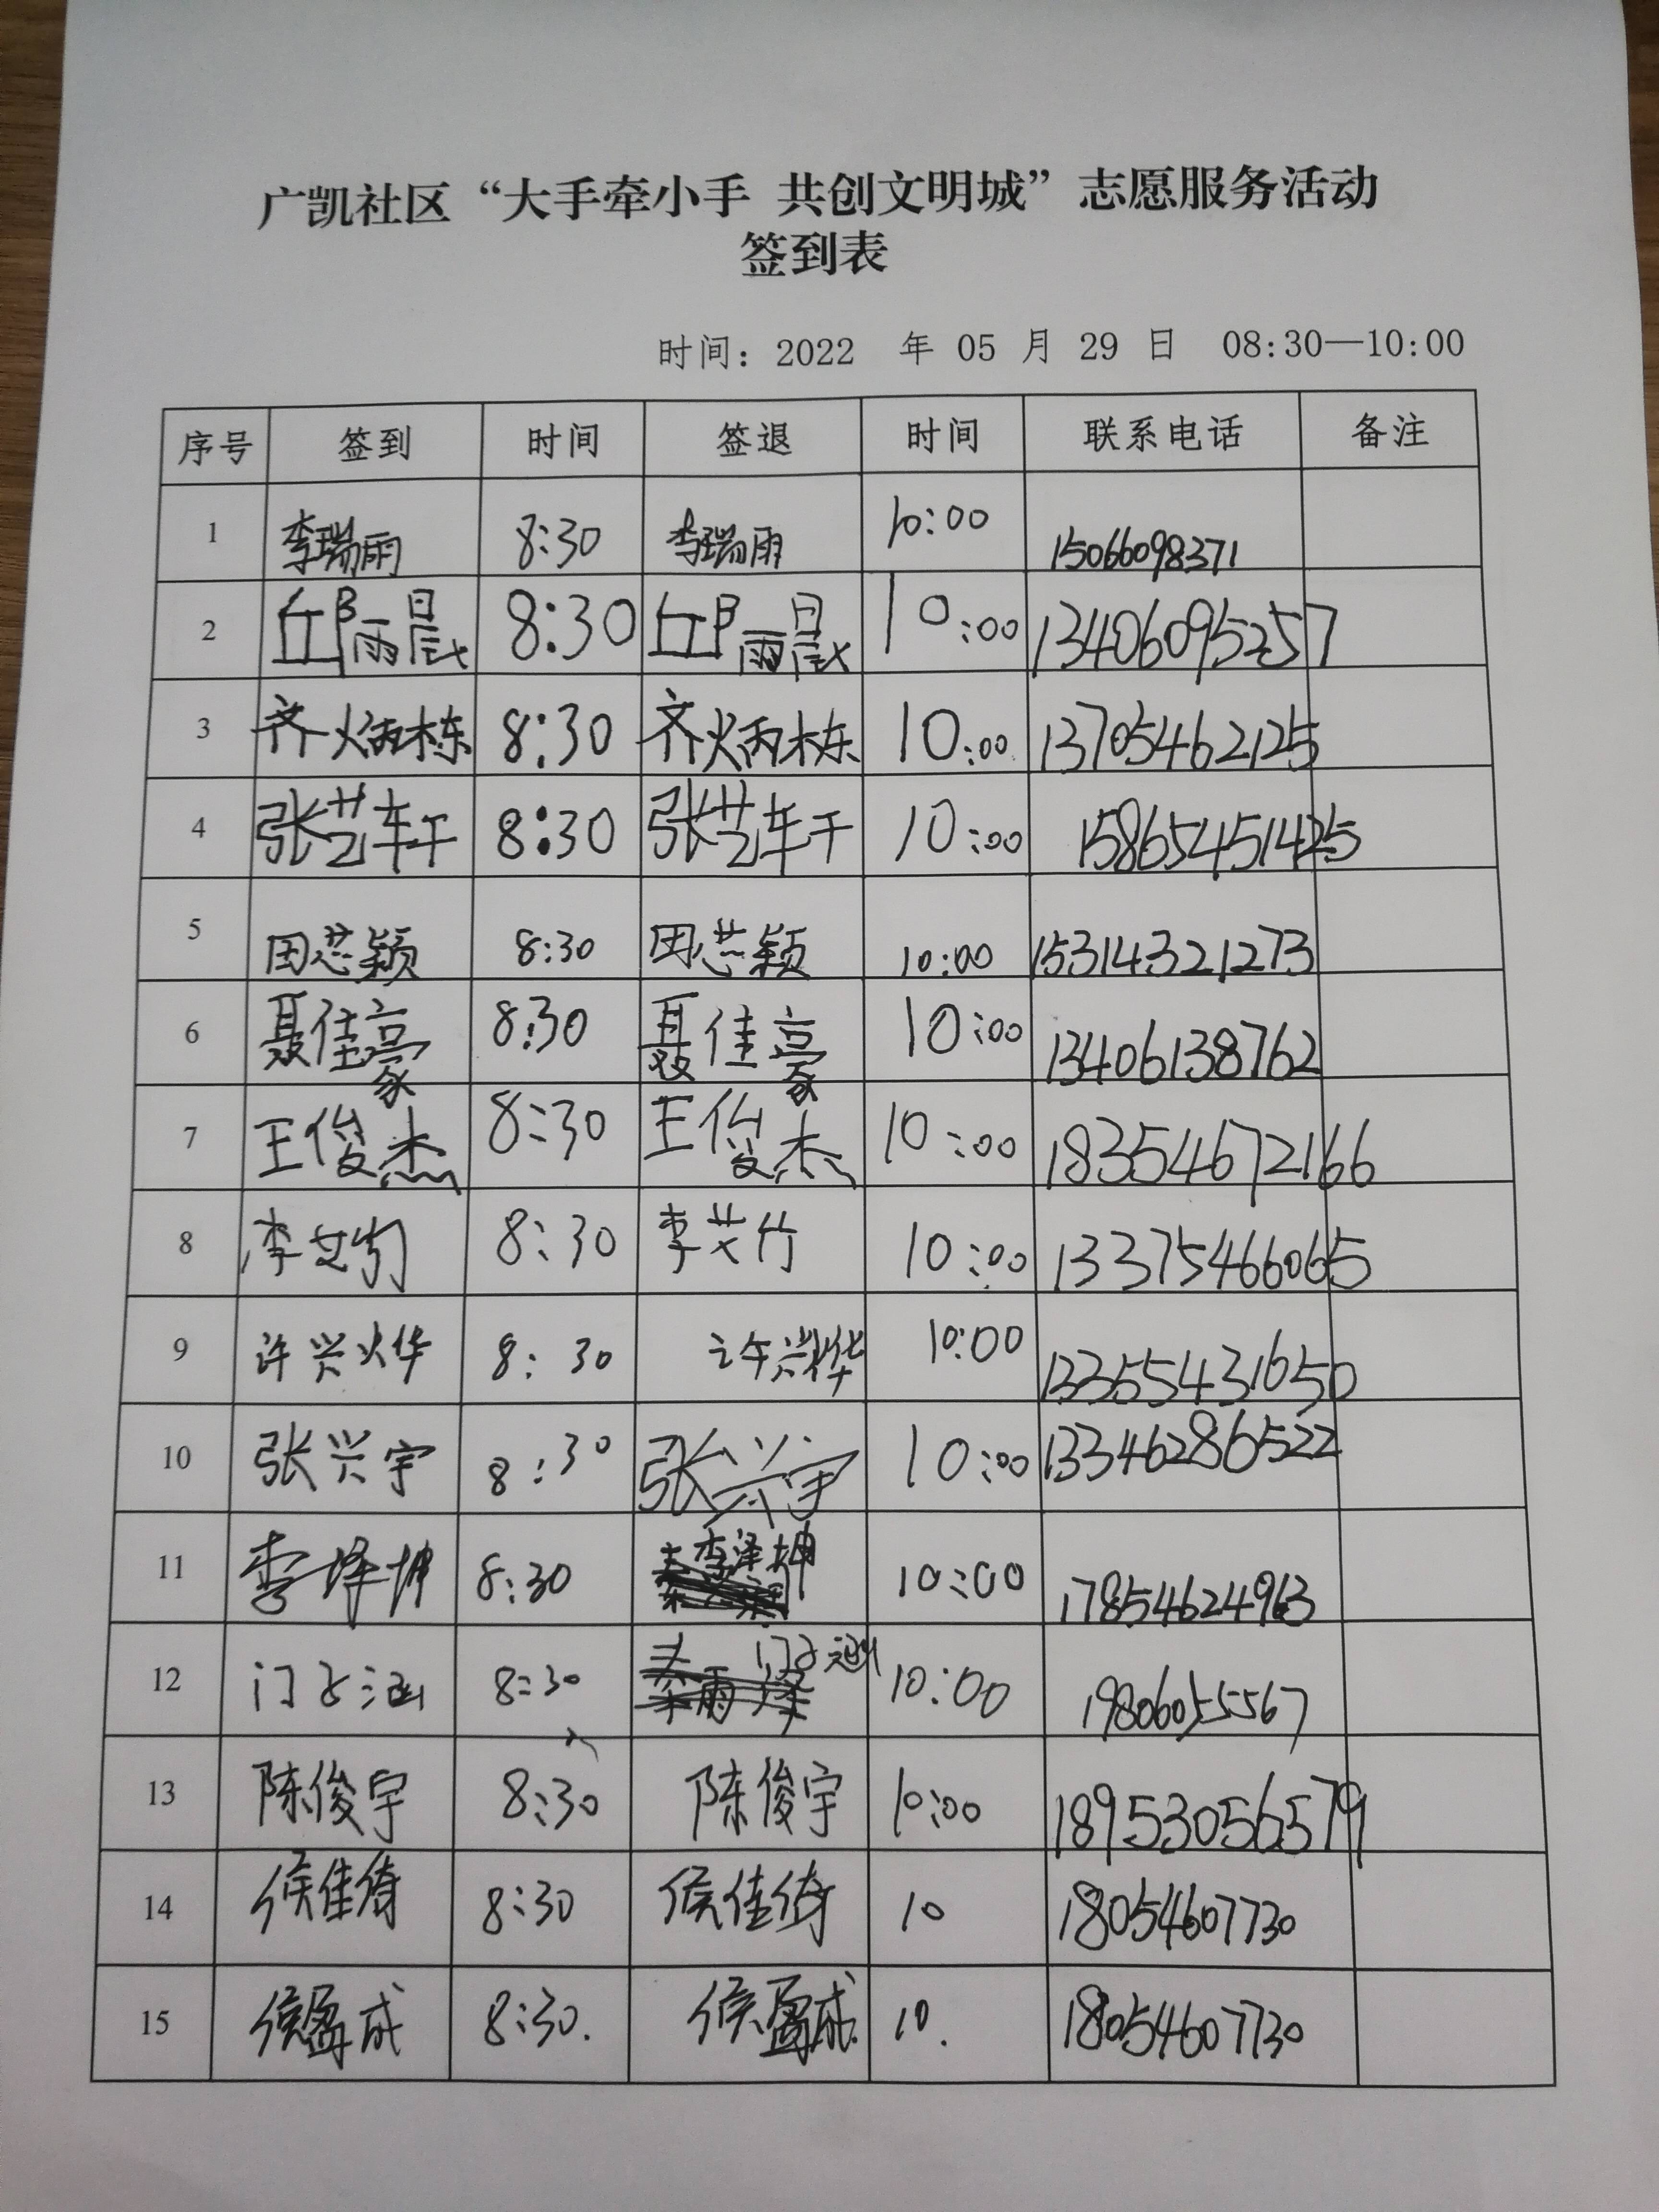 广凯社区“大手牵小手 共创文明城”志愿服务活动
签到表
时间：2022 年 05 月 29 日 08:30—10:00
序号 签到 时间 签退 时间 联系电话 备注
1 李瑞雨 8:30 李瑞雨 10:00 15066098371
2 邱雨晨 8:30 邱雨晨 10:00 13406095257
3 齐炳栋 8:30 齐炳栋 10:00 13705462125
4 张艺轩 8:30 张艺轩 10:00 15865451425
5 田芯颖 8:30 田芯颖 10:00 15314321273
6 聂佳豪 8:30 聂佳豪 10:00 13406138762
7 王俊杰 8:30 王俊杰 10:00 18354672166
8 李艾竹 8:30 李艾竹 10:00 13375466065
9 许兴烨 8:30 许兴烨 10:00 13355431650
10 张兴宇 8:30 张兴宇 10:00 13346286522
11 李泽坤 8:30 李泽坤 10:00 17854624963
12 门子涵 8:30 门子涵 10:00 19806055567
13 陈俊宇 8:30 陈俊宇 10:00 18953056579
14 侯佳绮 8:30 侯佳绮 10 18054607730
15 侯盈成 8:30. 侯盈成 10. 18054607730